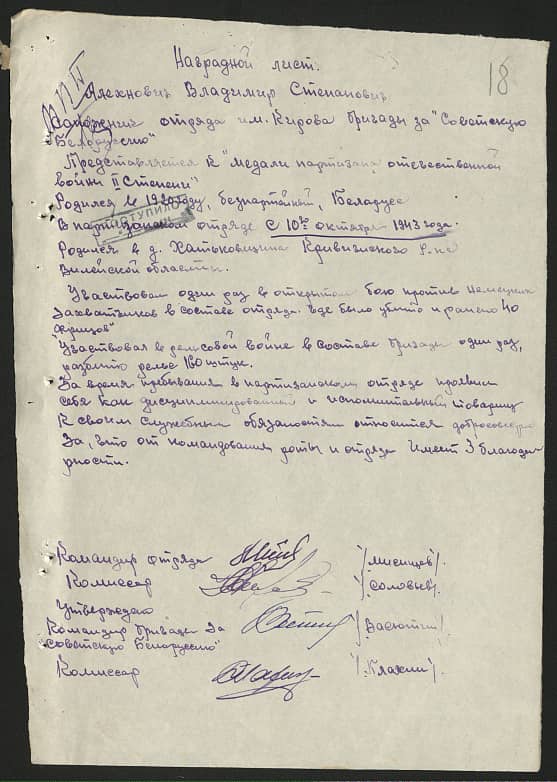 18
Наградной лист.
Алехнович Владимир Степанович
Сапожник отряда им. Кирова бригады за "Советскую
Белоруссию"
Представляется к "медали партизана отечественной
войны II Степени"
Родился в году, безпартейный, Беларусс
В партизанском отряде с 10го октября 1943 года.
Родился в д. Хатьковщина Кривичского р-на
Вилейской области.
Участвовал один раз в открытом бою против немецких
захватчиков в составе отряда. Где было убито и ранено 40
фрицов"
"Участвовал в релсовой войне в составе бригады один раз,
разбито рельс 160 штук.
За время пребывания в партизанском отряде проявил
себя как дисциплинированый и исполнительный товарищ
К своим служебным обязаностям относится добросовестно
За, что от командования роты и отряда имеет 3 благодар
рности.
Командир отряда /Мисинцев/.
Комиссар /Соловьев/.
Утверждаю
Командир бригады За /Васютин/.
"Советскую Белоруссию"
Комиссар